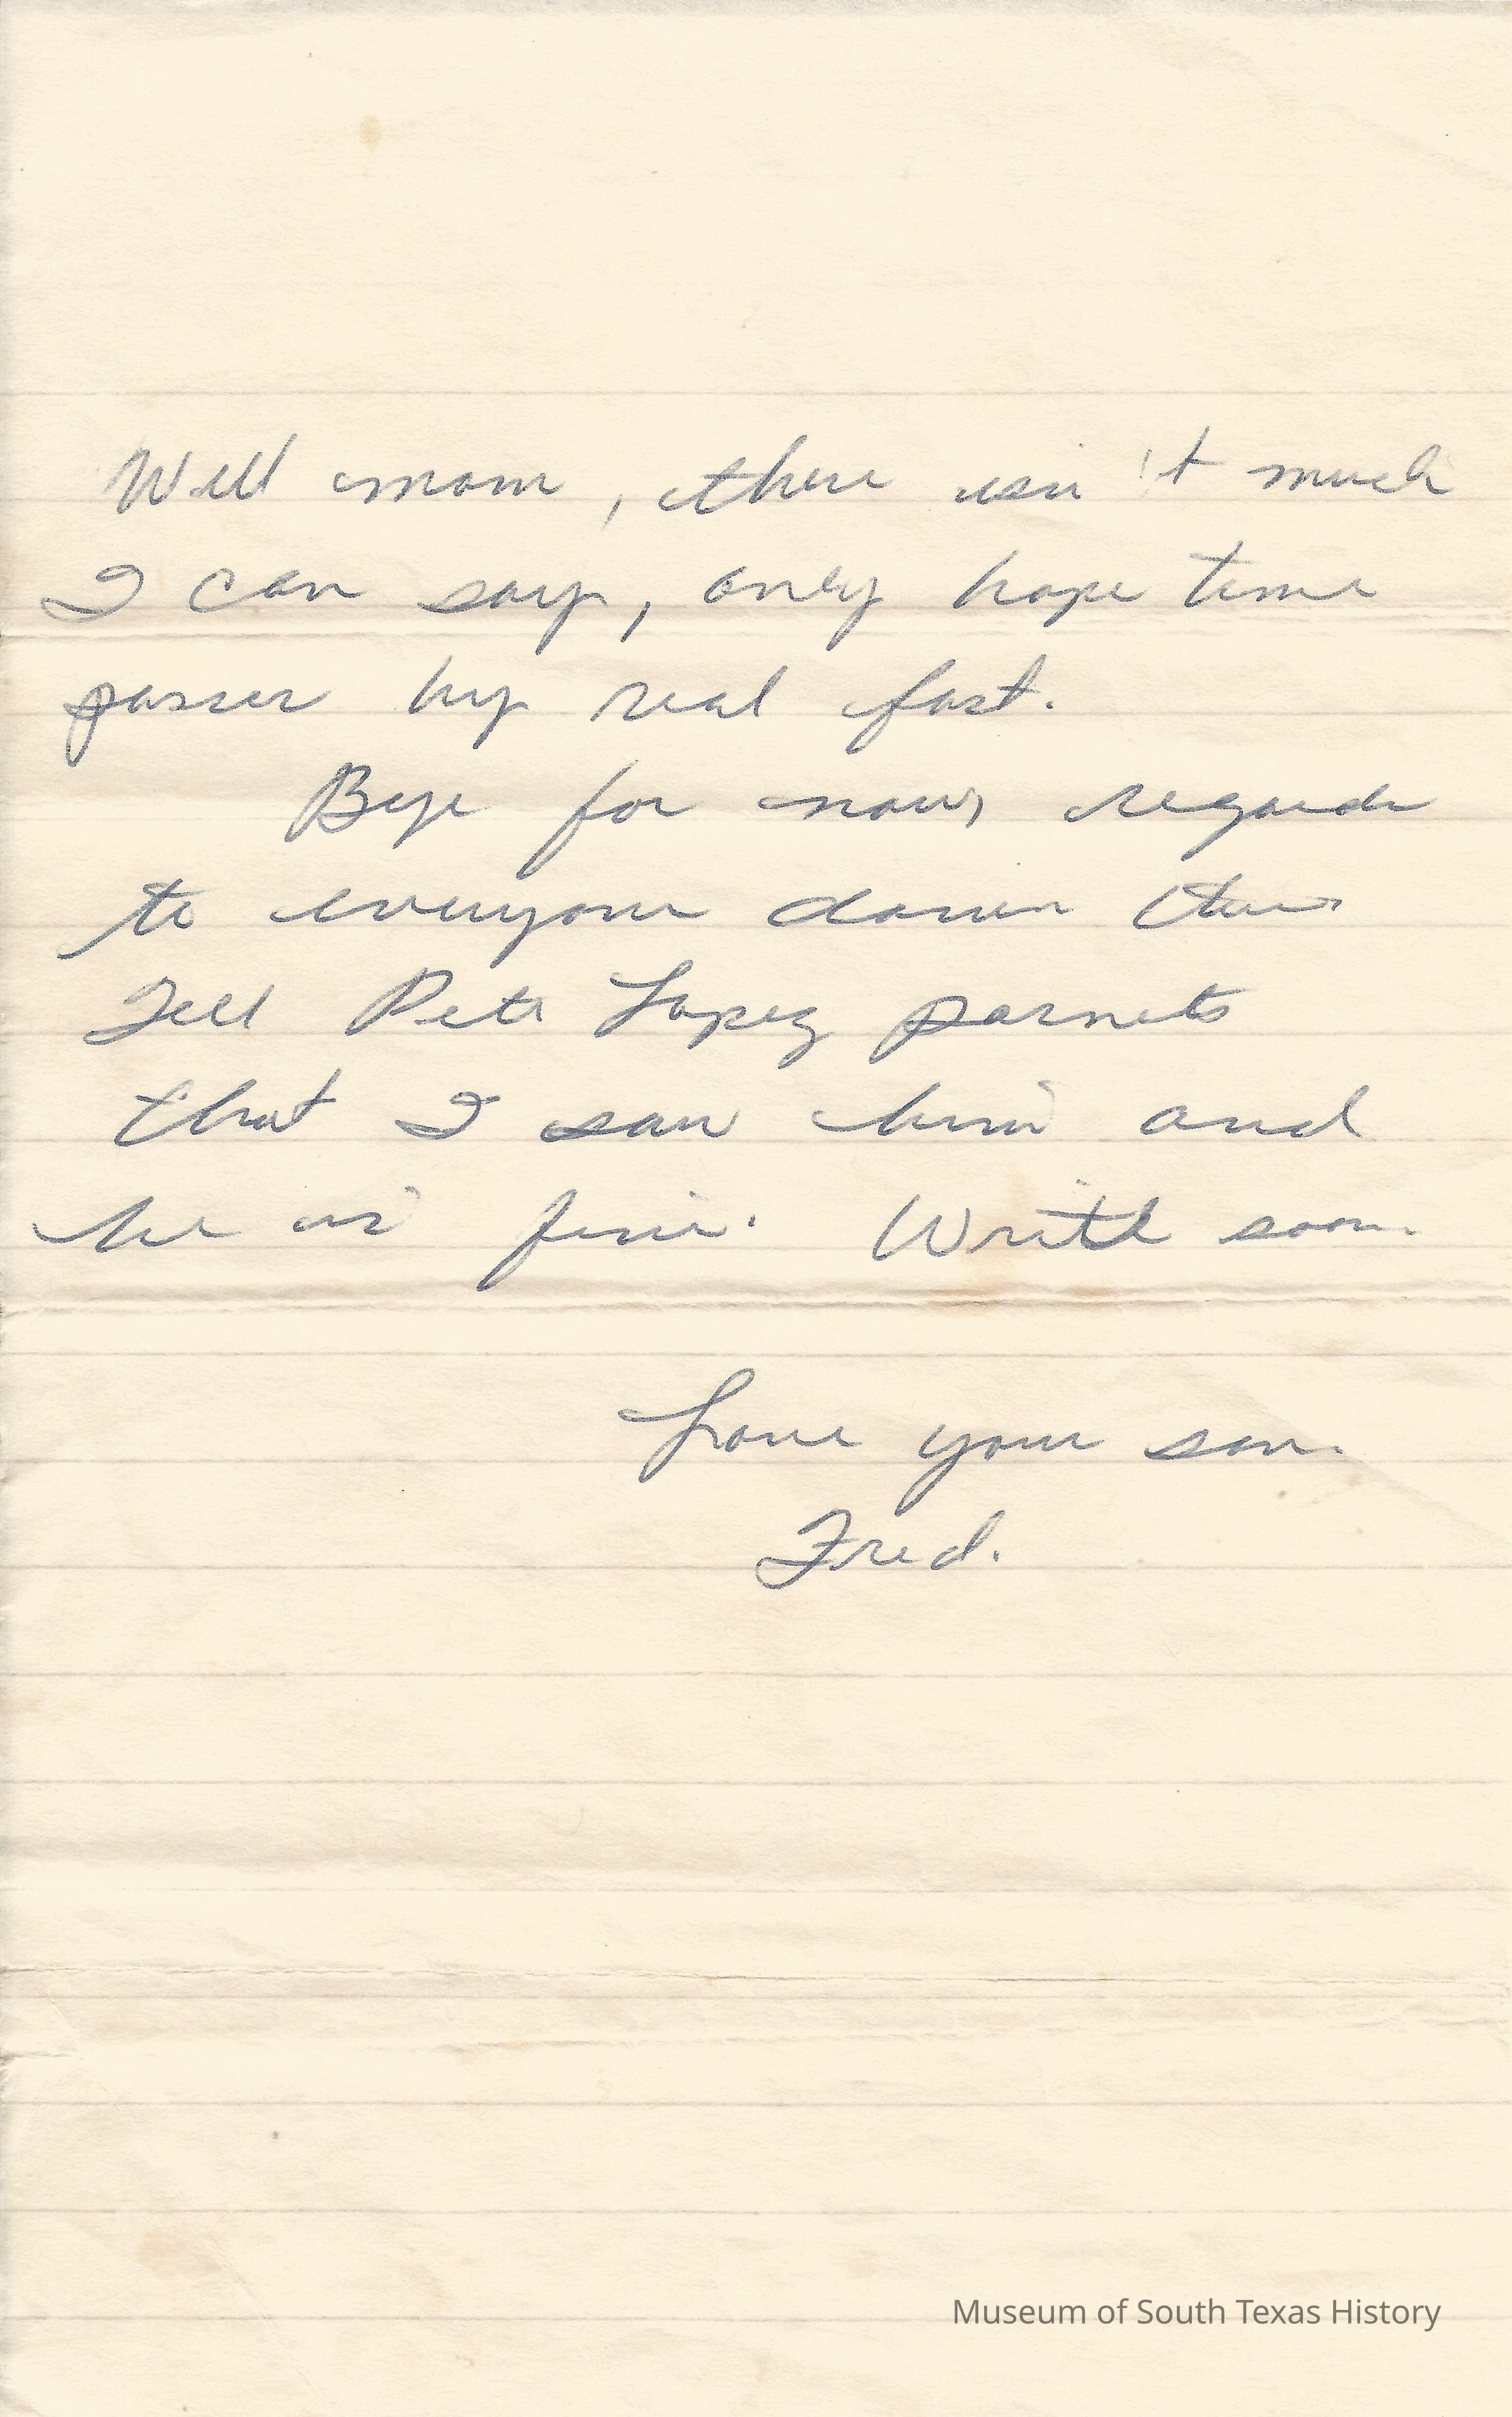 Well mom, there isn't much
I can say, only hope time
passes by real fast.
Bye for now, regards
to everyone down there
Tell Pete Lopez parnets
that I saw him and
he is fine. Write soon.
Love your son.
Fred.
Museum of South Texas History